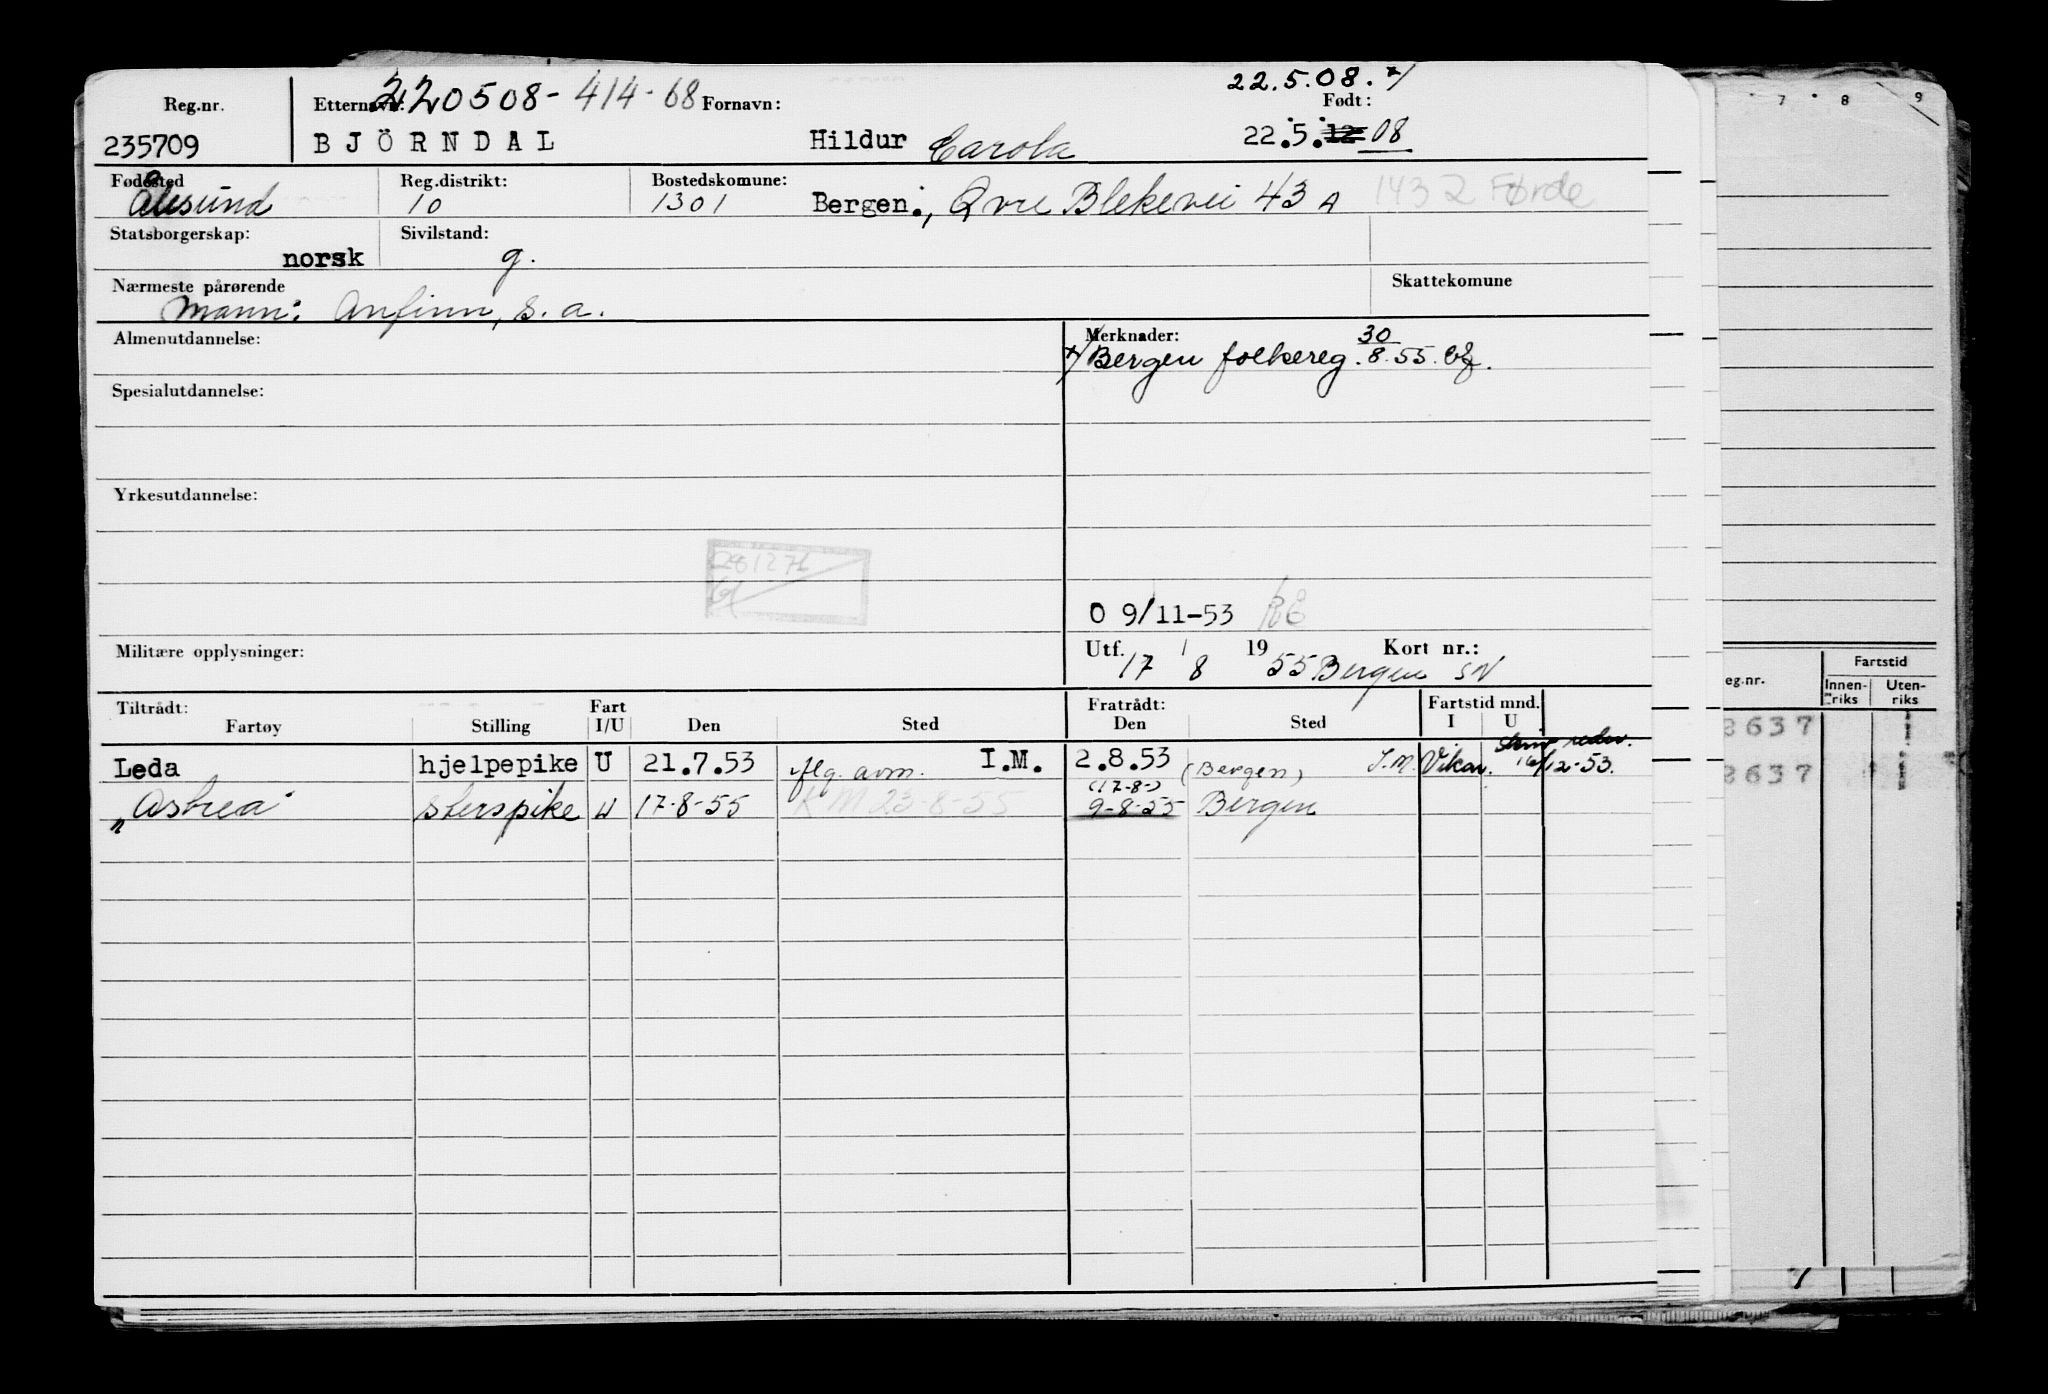 220508-414-68
22.5.08. x/
Reg.nr. Etternavn: Fornavn: Født:
235709 BJÖRNDAL Hildur Carola 22.5.12 08
Fødested Reg.distrikt: Bostedskomune:
Ålesund 10 1301 Bergen., Øvre Blekevei 43 A 1432 Førde
Statsborgerskap: Sivilstand:
norsk g.
Nærmeste pårørende Skattekomune
Mann: Anfinn, s. a.
Almenutdannelse: Merknader:
x/ Bergen folkereg. 30/8.55.
Spesialutdannelse:
Yrkesutdannelse:
281276
O 9/11-53 RE
Militære opplysninger: Utf. 17/8 1955 Bergen SN Kort nr.:
Tiltrådt: Fart Fratrådt: Fartstid mnd.
Fartøy Stilling I/U Den Sted Den Sted I U
Leda hjelpepike U 21.7.53 flg. avm. I.M. 2.8.53 (Bergen) I.M. Vikar. 16/12-53.
"Astrea" sterspike U 17-8-55 KM 23-8-55 (17-8-) 9-8-55 Bergen
7 8 9
eg.nr. Fartstid
Innen-riks Uten-riks
8637 1
8637 1